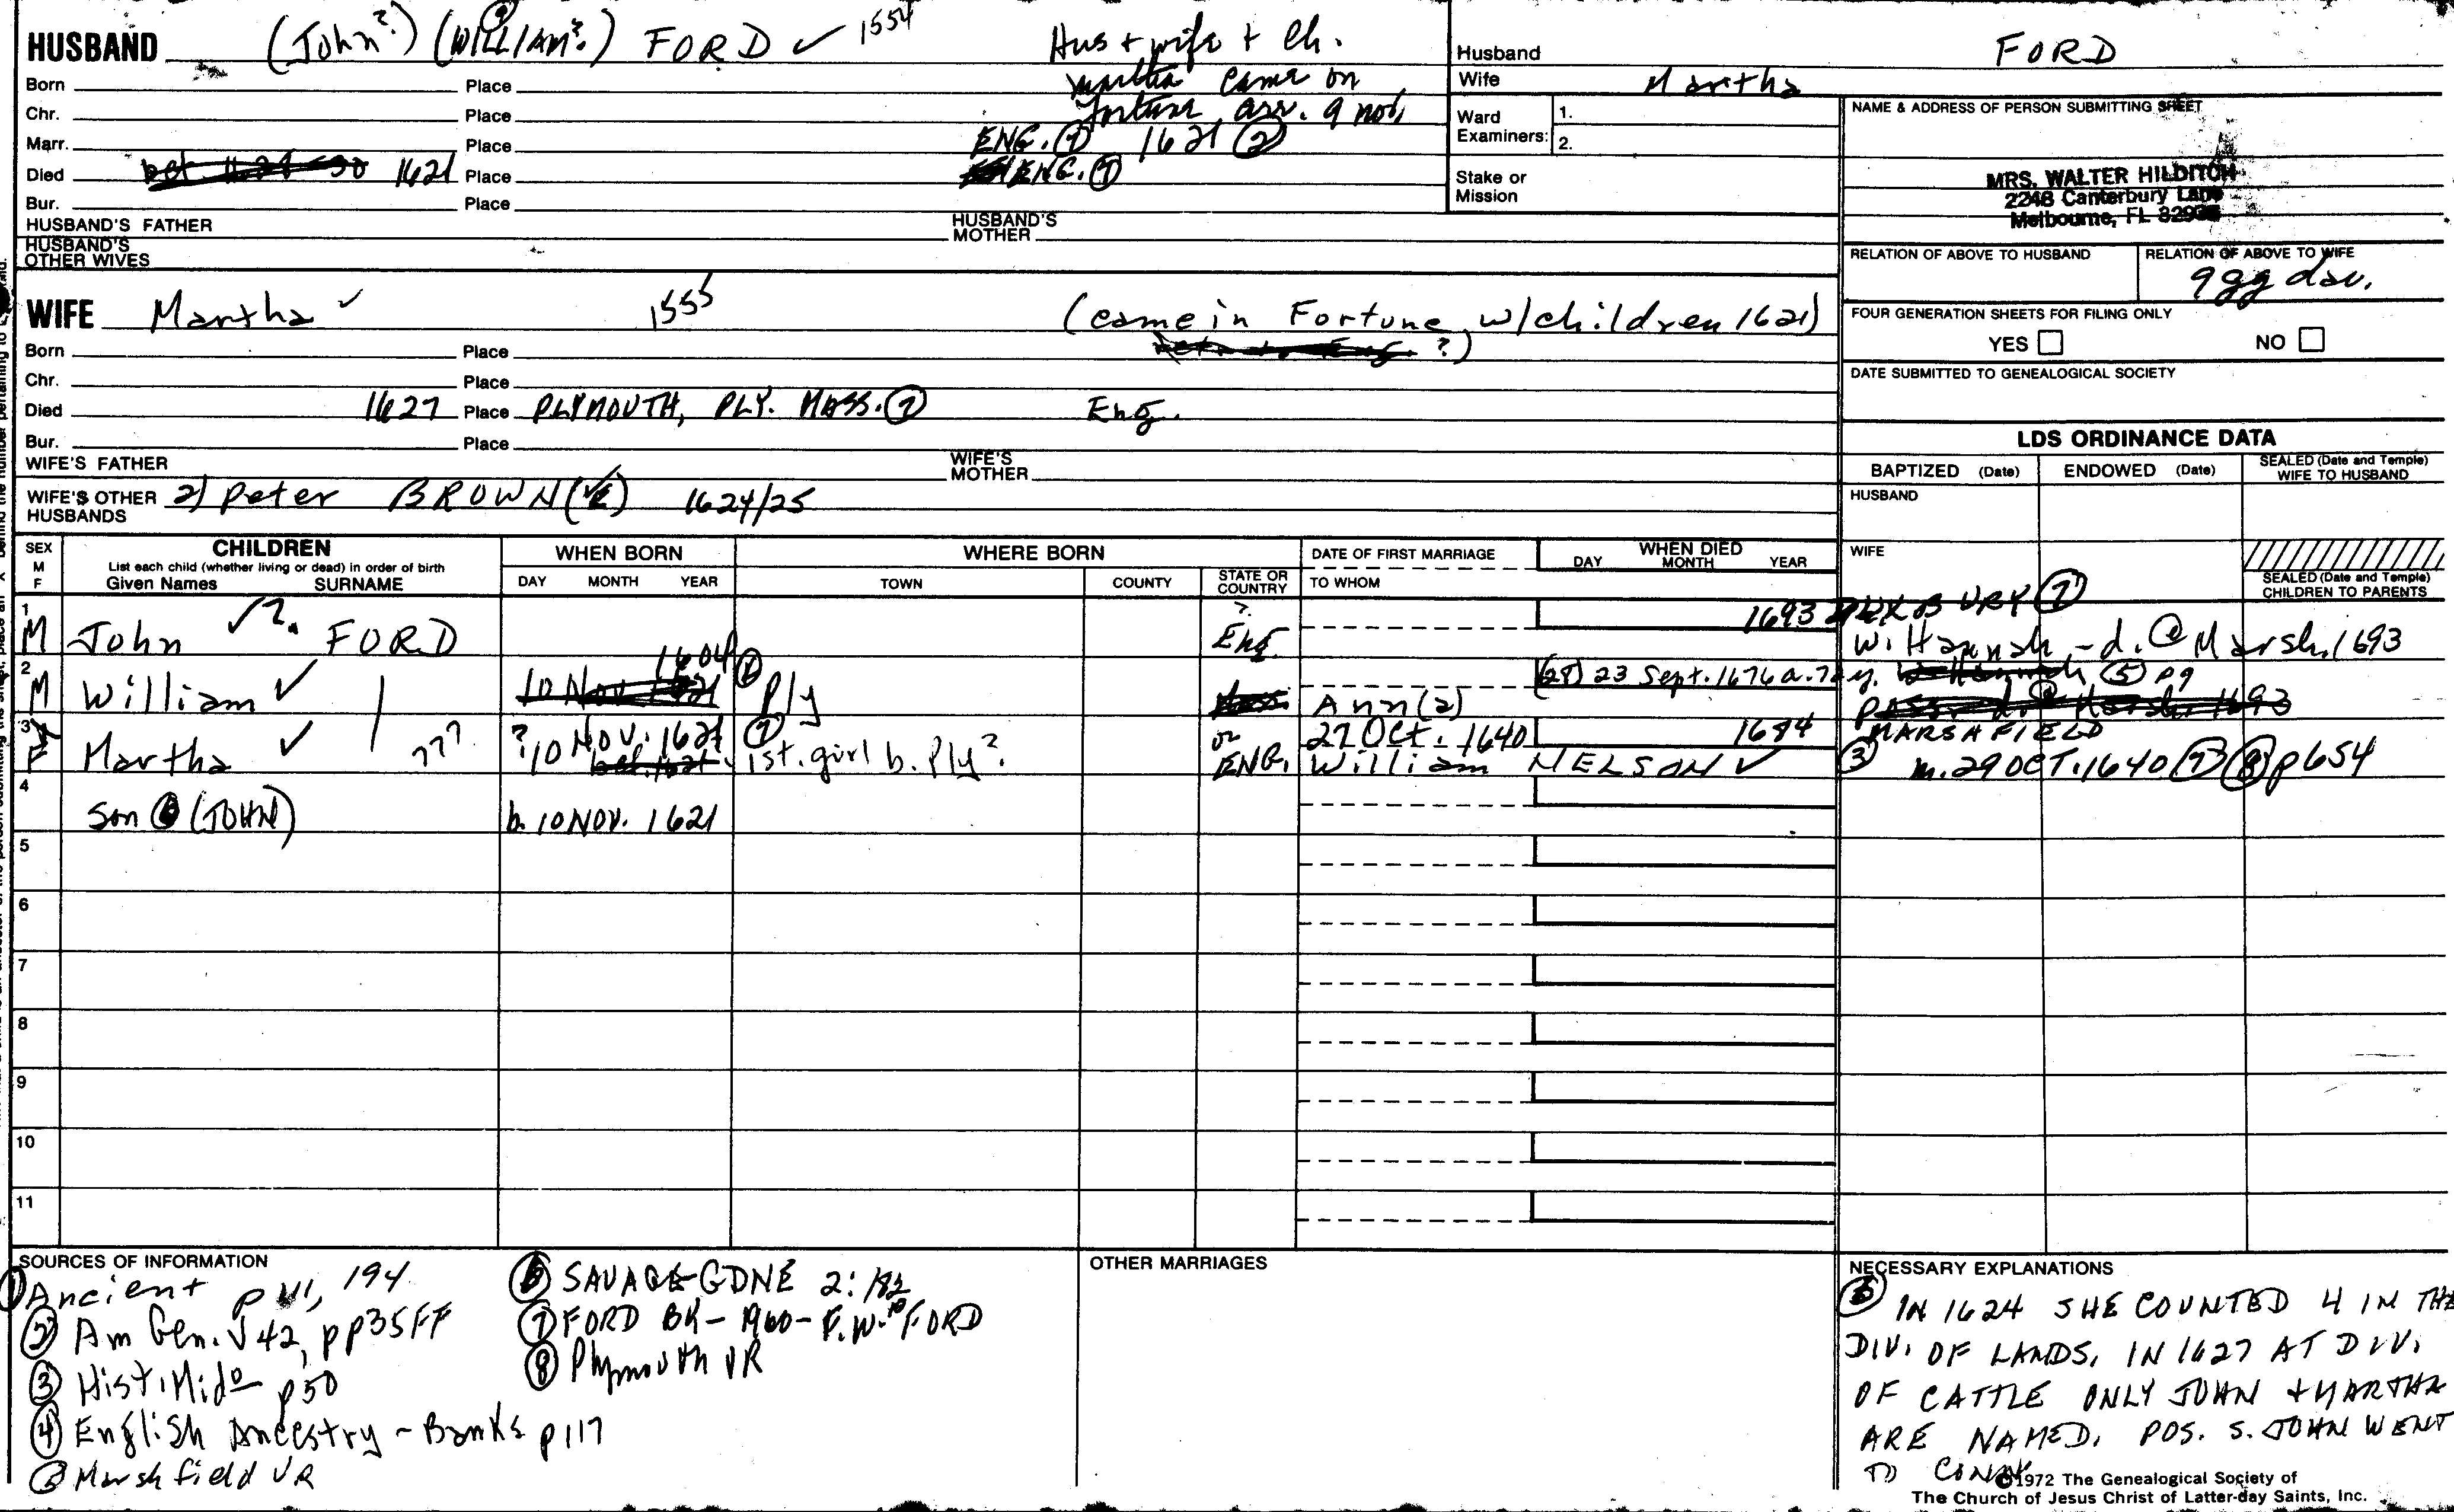 HUSBAND (John?) (WILLIAM?) FORD ✓ 1554
Hus + wife + Ch.
Martha came on
Fortune arr. 9 nov,
1621 ②
Born Place
Chr. Place
Marr. Place ENG. ⑦
Died 1621 Place ENG. ⑦
Bur. Place
HUSBAND'S FATHER HUSBAND'S MOTHER
HUSBAND'S OTHER WIVES
Husband FORD
Wife Martha
Ward Examiners: 1.
2.
Stake or Mission
NAME & ADDRESS OF PERSON SUBMITTING SHEET
MRS. WALTER HILDITCH
2248 Canterbury Lane
Melbourne, FL
RELATION OF ABOVE TO HUSBAND RELATION OF ABOVE TO WIFE
9gg dau.
FOUR GENERATION SHEETS FOR FILING ONLY
YES NO
DATE SUBMITTED TO GENEALOGICAL SOCIETY
WIFE Martha ✓ 1555 (came in Fortune w/children 1621)
?)
Born Place
Chr. Place
Died 1627 Place PLYMOUTH, PLY. MASS. ⑦ Eng.
Bur. Place
WIFE'S FATHER WIFE'S MOTHER
WIFE'S OTHER HUSBANDS 2) Peter BROWN 1624/25
LDS ORDINANCE DATA
BAPTIZED (Date) ENDOWED (Date) SEALED (Date and Temple) WIFE TO HUSBAND
HUSBAND
WIFE
SEALED (Date and Temple) CHILDREN TO PARENTS
SEX M F
CHILDREN
List each child (whether living or dead) in order of birth
Given Names SURNAME
WHEN BORN
DAY MONTH YEAR
WHERE BORN
TOWN COUNTY STATE OR COUNTRY
DATE OF FIRST MARRIAGE
TO WHOM
WHEN DIED
DAY MONTH YEAR
1 M John ✓? FORD ? Eng. 1693 DUXBURY ⑦
w. Hannah - d. @ Marsh. 1693
2 M William ✓ 1604 Ply Ann (2) 23 Sept. 1676 a. 72 y. ⑤ p9
MARSHFIELD
3 F Martha ✓ ??? ? 10 Nov. 1621 ⑦ 1st. girl b. Ply? or ENG. 27 Oct. 1640 1684
William NELSON ✓ ③ m. 29 OCT. 1640 ⑦ ⑧ p654
4 Son ⑥ (JOHN) b. 10 NOV. 1621
5
6
7
8
9
10
11
SOURCES OF INFORMATION
① Ancient 194
② Am Gen. V 42, pp35FF
③ Hist. Mido p50
④ English Ancestry - Banks p117
⑤ Marshfield VR
⑥ SAVAGE-GDNE 2:182
⑦ FORD BK - 1960 - F.W. FORD
⑧ Plymouth VR
OTHER MARRIAGES
NECESSARY EXPLANATIONS
⑥ IN 1624 SHE COUNTED 4 IN THE
DIV. OF LANDS, IN 1627 AT DIV.
OF CATTLE ONLY JOHN + MARTHA
ARE NAMED. POS. S. JOHN WENT
TO CONN.
©1972 The Genealogical Society of
The Church of Jesus Christ of Latter-day Saints, Inc.